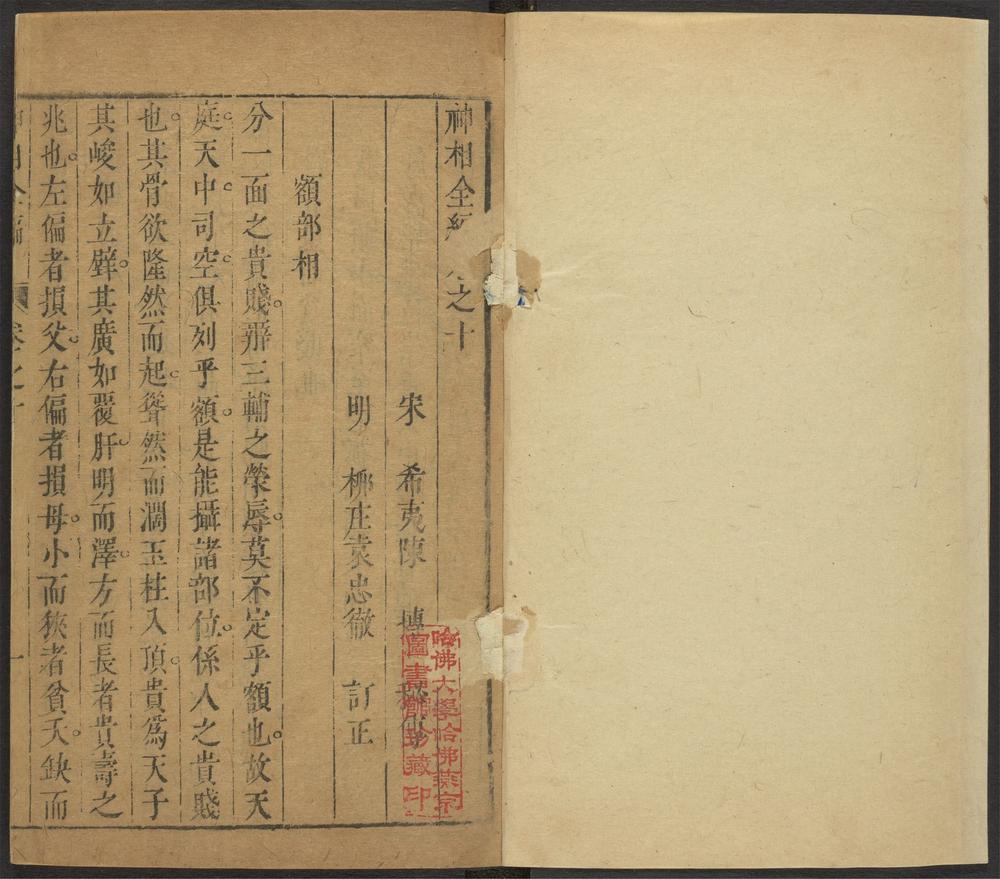 神相全編 之十
宋 希夷陳 摶 秘傳
明 栁庄袁忠徹 訂正
哈佛大學哈佛燕京
圖書館珍藏印
額部相
分一面之貴賤。辨三輔之榮辱。莫不定乎額也。故天
庭。天中。司空。俱列乎額。是能攝諸部位。係人之貴賤
也。其骨欲隆然而起。聳然而濶。玉柱入頂。貴爲天子
其峻如立壁。其廣如覆肝。明而澤。方而長者貴壽之
兆也。左偏者損父。右偏者損母。小而狹者貧夭。缺而
卷之十
一